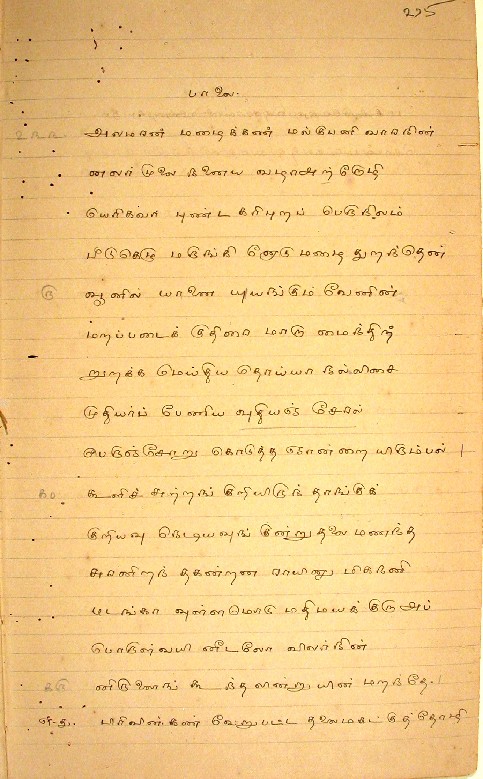 225
பாலை.
233. அலமரன் மழைக்கண் மல்குபனி வாரநின்
னலர்முலை நனைய வழாஅற் றோழி
யெரிகவர் புண்ட கரிபுறப் பெருநிலம்
பீடுகெழு மருங்கி னோடுமழை துறந்தென
௫ வூனில் யானை யுயங்கும் வேனின்
மறப்படைக் குதிரை மாறா மைந்திற்
றுறக்க மெய்திய தொய்யா நல்லிசை
முதியர்ப் பேணிய வுதியஞ் சேரல்
பெருஞ்சோறு கொடுத்த ஞான்றை யிரும்பல்
௧௦ கூளிச் சுற்றங் குழீயிருந் தாங்குக்
குறியவு நெடியவுங் குன்றுதலை மணந்த
சுரனிறந் தகன்றன ராயினு மிகநனி
மடங்கா வுள்ளமொடு மதிமயக் குறாஅப்
பொருள்வயி னீடலோ விலர்நின்
௧௫ னிருளைங் கூந்தலின்றுயின் மறந்தே.
எ-து. பிரிவின்கண் வேறுபட்ட தலைமகட்குத்தோழி